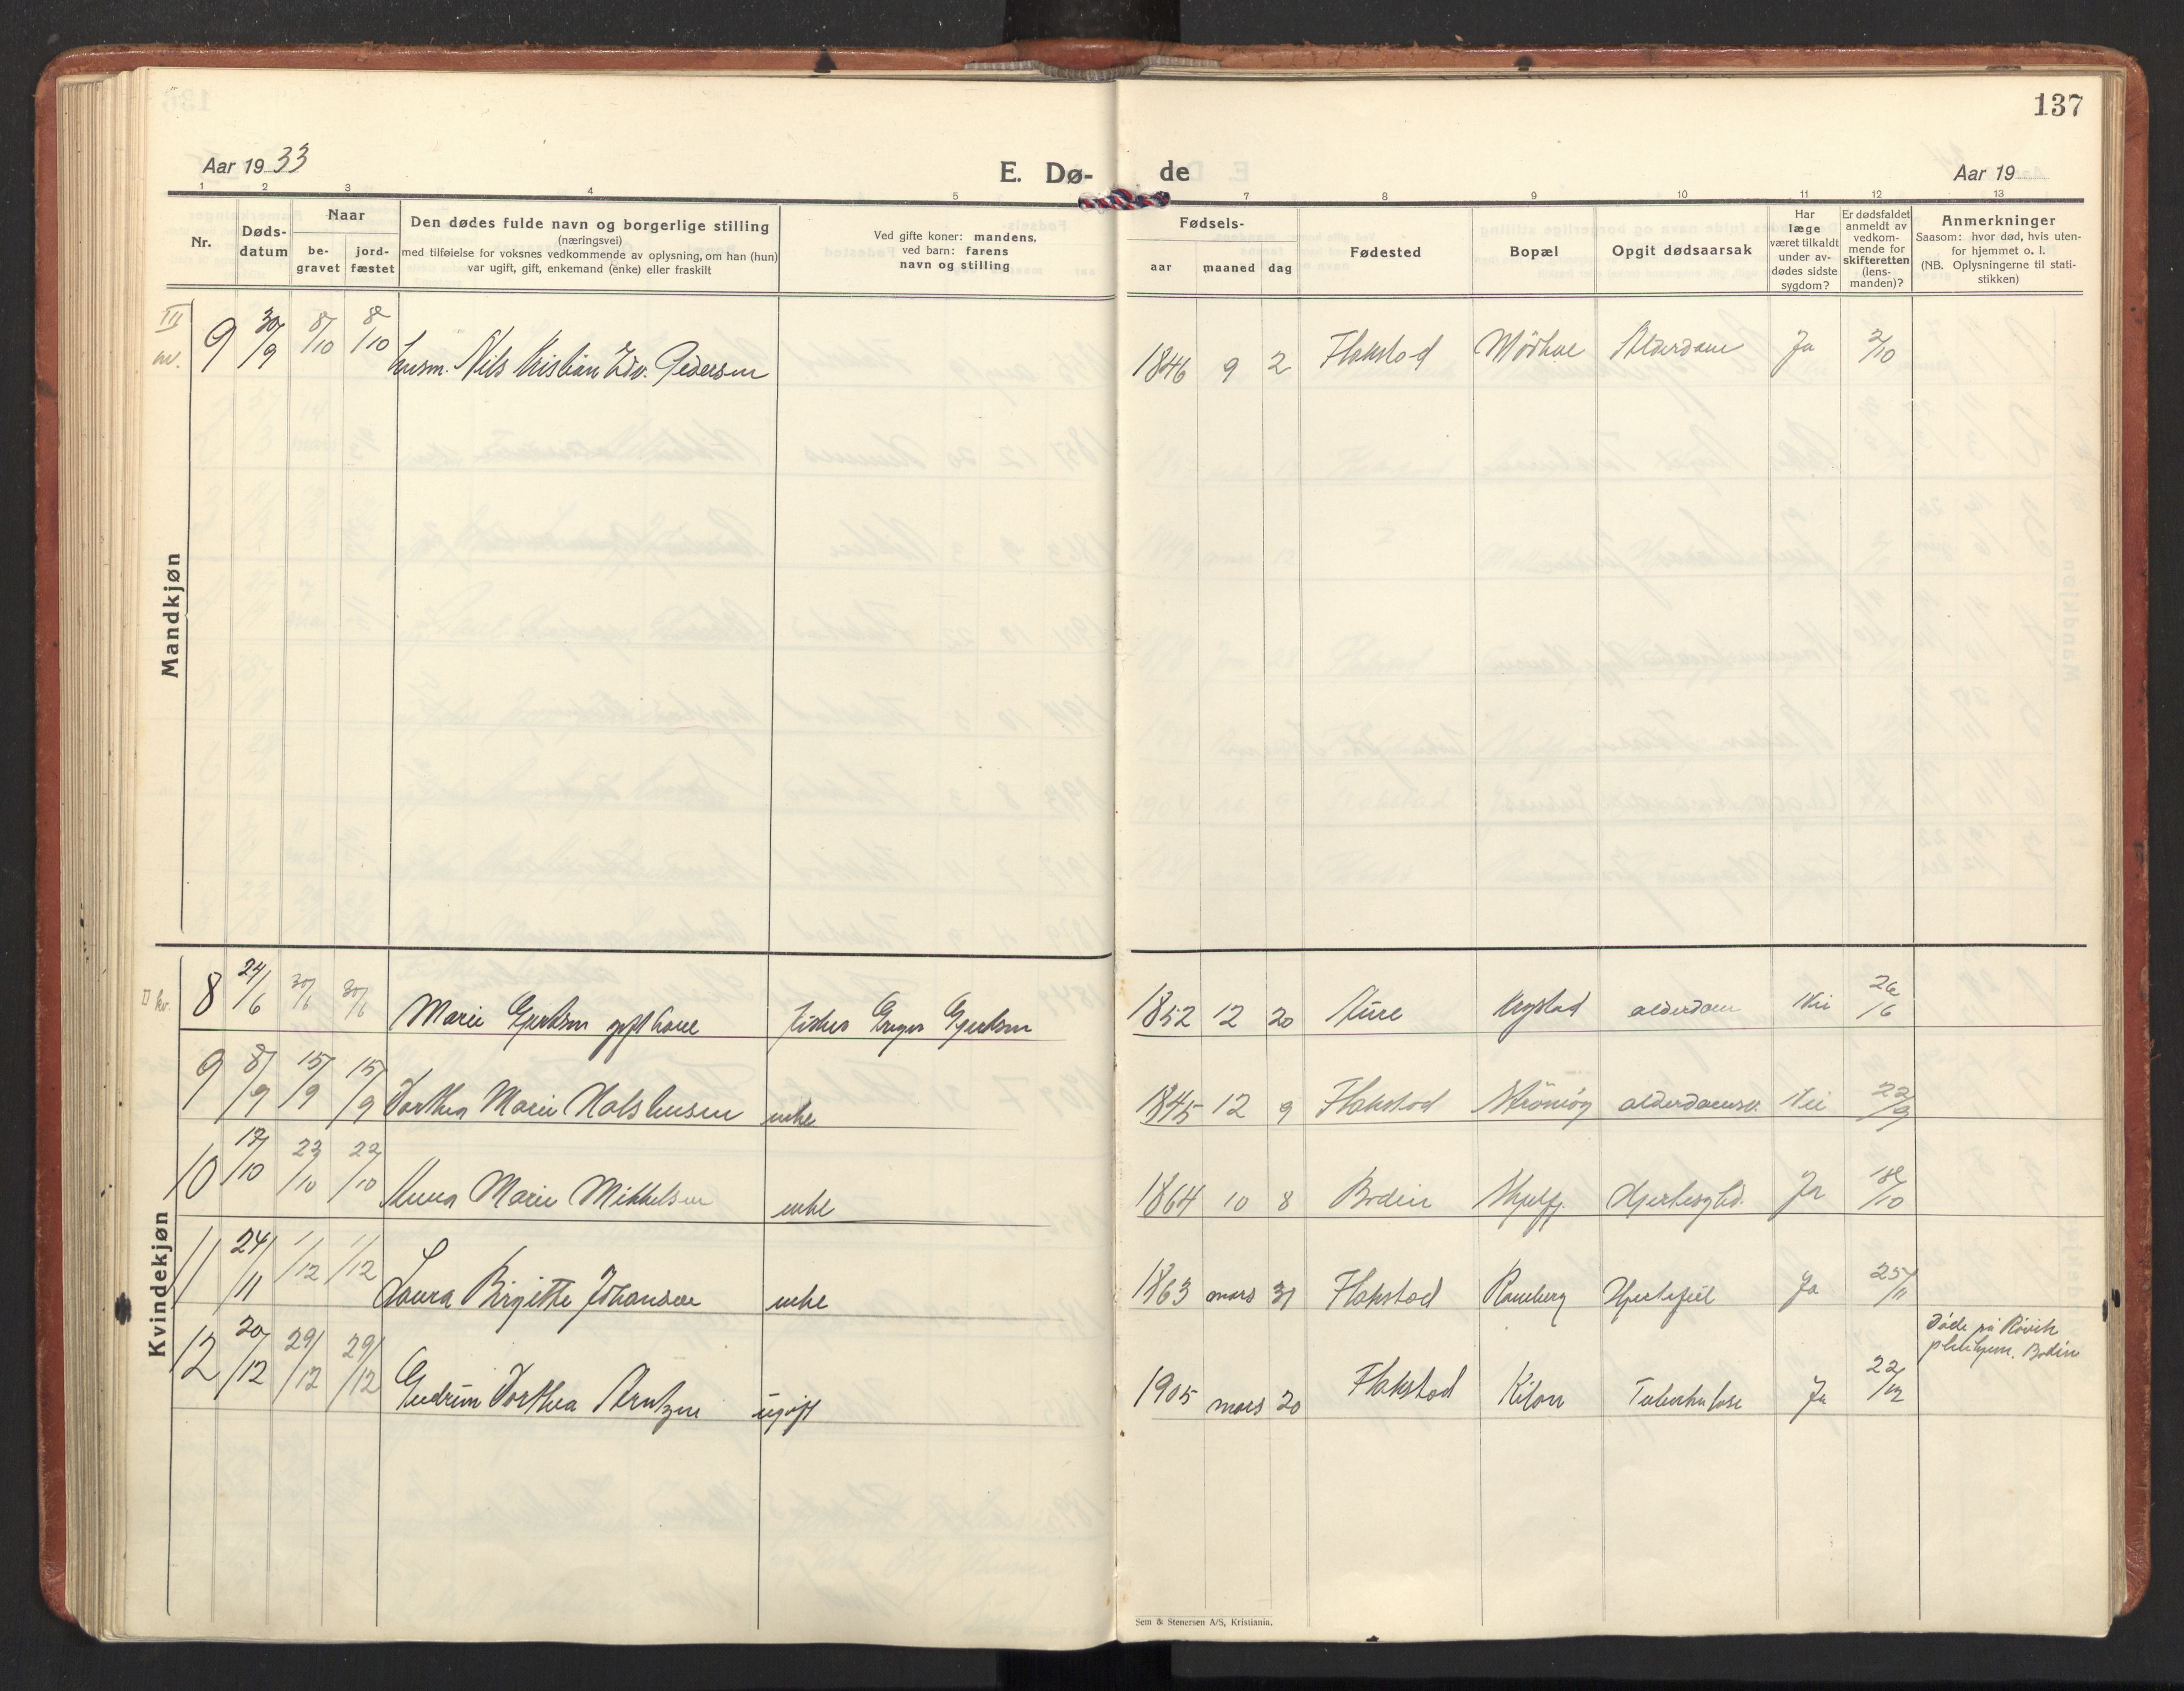 137
Aar 1933
E. Dø-
de
Aar 19
1 2 3 4 5 7 8 9 10 11 12 13
Nr.
Døds-
datum
Naar
be-
gravet
jord-
fæstet
Den dødes fulde navn og borgerlige stilling
(næringsvei)
med tilføielse for voksnes vedkommende av oplysning, om han (hun)
var ugift, gift, enkemand (enke) eller fraskilt
Ved gifte koner: mandens,
ved barn: farens
navn og stilling
Fødsels-
aar maaned dag
Fødested
Bopæl
Opgit dødsaarsak
Har
læge
været tilkaldt
under av-
dødes sidste
sygdom?
Er dødsfaldet
anmeldt av
vedkom-
mende for
skifteretten
(lens-
manden)?
Anmerkninger
Saasom: hvor død, hvis uten-
for hjemmet o. l.
(NB. Oplysningerne til stati-
stikken)
Mandkjøn
III
9 30/9 8/10 8/10 husm. Nils Kristian Edv. Pedersen 1846 9 2 Flakstad Alderdom Ja 2/10
Kvindekjøn
II kv.
8 24/6 30/6 30/6 Marie Gjertsen gift kone fisker Gjertsen 1852 12 20 Aure alderdom Nei 26/6
9 8/9 15/9 15/9 Dorthea Marie enke 1845 12 9 Flakstad Strømøy Nei 22/9
10 17/10 23/10 22/10 Anna Marie Mikkelsen enke 1864 10 8 Bodin Skjelfj. Ja 18/10
11 24/11 1/12 1/12 Laura Birgitte Johansen enke 1863 mars 31 Flakstad Ramberg Hjertefeil Ja 25/11
12 20/12 29/12 29/12 Gudrun Dorthea Arntzen ugift 1905 mars 20 Flakstad Kilan Tuberkulose Ja 22/12
Døde på Røvik
pleiehjem. Bodin
Sem & Stenersen A/S, Kristiania.